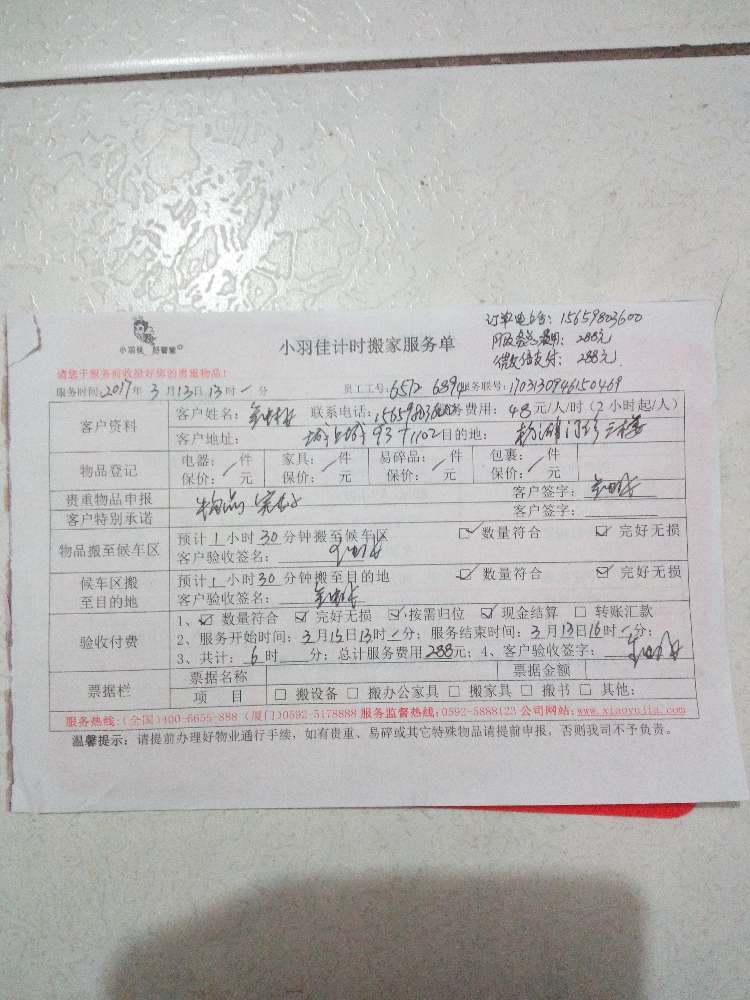 订单电话：15659803600
服务总费用：288元
微信支付：288元
小羽佳 好管家
小羽佳计时搬家服务单
请您于服务前收拾好您的贵重物品！
服务时间：2017年 3月13日13时一分 员工工号：6512 6894 服务联号：1703130946150469
客户资料
客户姓名： 联系电话： 服务费用：48元/人/时（2小时起/人）
客户地址： 93 1102 目的地：
物品登记
电器： 一件 家具： 一件 易碎品： 一件 包裹： 一件
保价： 元 保价： 元 保价： 元 保价： 元
贵重物品申报 物品完好 客户签字：
客户特别承诺 客户签字：
物品搬至候车区
预计1小时30分钟搬至候车区 ☑数量符合 ☑完好无损
客户验收签名：
候车区搬至目的地
预计1小时30分钟搬至目的地 ☑数量符合 ☑完好无损
客户验收签名：
验收付费
1、☑数量符合 ☑完好无损 ☑按需归位 ☑现金结算 □转账汇款
2、服务开始时间：3月13日13时一分；服务结束时间：3月13日16时一分；
3、共计：6时 分；总计服务费用288元；4、客户验收签字：
票据栏
票据名称 票据金额
项 目 □搬设备 □搬办公家具 □搬家具 □搬书 □其他：
服务热线：(全国)400-6655-888 (厦门)0592-5178888 服务监督热线：0592-5888123 公司网站：www.xiaoyujia.com
温馨提示：请提前办理好物业通行手续，如有贵重、易碎或其它特殊物品请提前申报，否则我司不予负责。